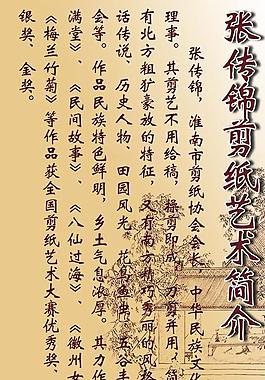 张传锦剪纸艺术简介
张传锦，淮南市剪纸协会会长，中华民族文化
理事。其剪艺不用给稿，操剪即成，刀剪并用，
有北方粗犷豪放的特征，又有南方精巧秀丽的风格
话传说、历史人物、田园风光、花鸟鱼虫、五谷丰
会等。作品民族特色鲜明，乡土气息浓厚。其力作
满堂》、《民间故事》、《八仙过海》、《徽州女
《梅兰竹菊》等作品获全国剪纸艺术大赛优秀奖、
银奖、金奖。